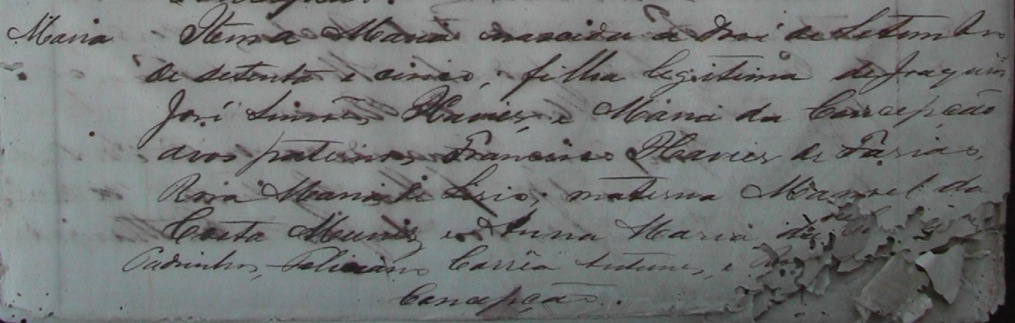 Maria Item a Maria nascida a de Setembro
de setenta e cinco, filha legitima de Joaquim
José Simões Xavier, e Maria da Conceipção
avos paternos Francisco Xavier de Farias,
Rosa Maria de materna Manoel da
Costa Muniz, e Anna Maria
Padrinhos, Feliciano Corrêa Antunes, e
Conceipção.